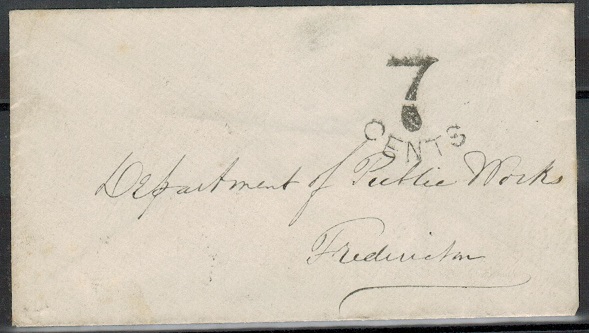 7
CENTS
Department of Public Works
Fredericton